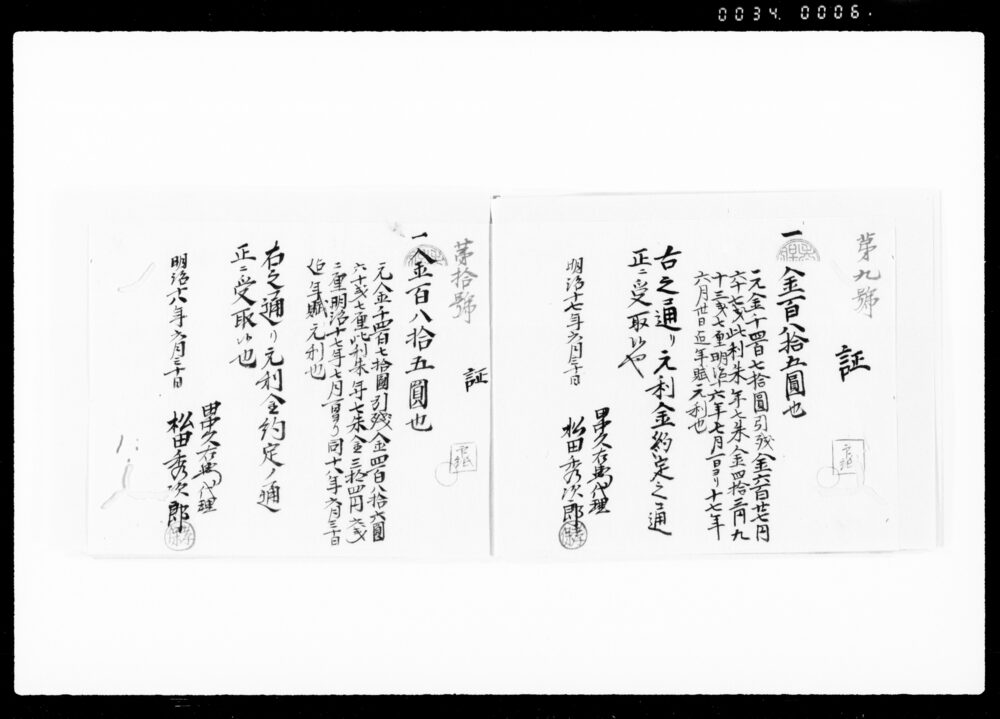 0034. 0006.
第九號
証
一金百八拾五圓也
元金千四百七拾圓引残金六百廿七円
六十七銭此利朱年七朱金四拾三円九
十三銭七重明治十六年七月一日ヨリ十七年
六月卅日迄年賦元利也
右之通リ元利金約定之通
正ニ受取候也
明治十七年六月三十日
代理
松田秀次郎
第拾號
証
一金百八拾五圓也
元金千四百七拾圓引残金四百八拾六圓
六十銭七重此利朱年七朱金三拾四円六銭
二重明治十七年七月一日ヨリ同十八年六月三十日
迄年賦元利也
右之通リ元利金約定ノ通
正ニ受取候也
明治十八年六月三十日
代理
松田秀次郎